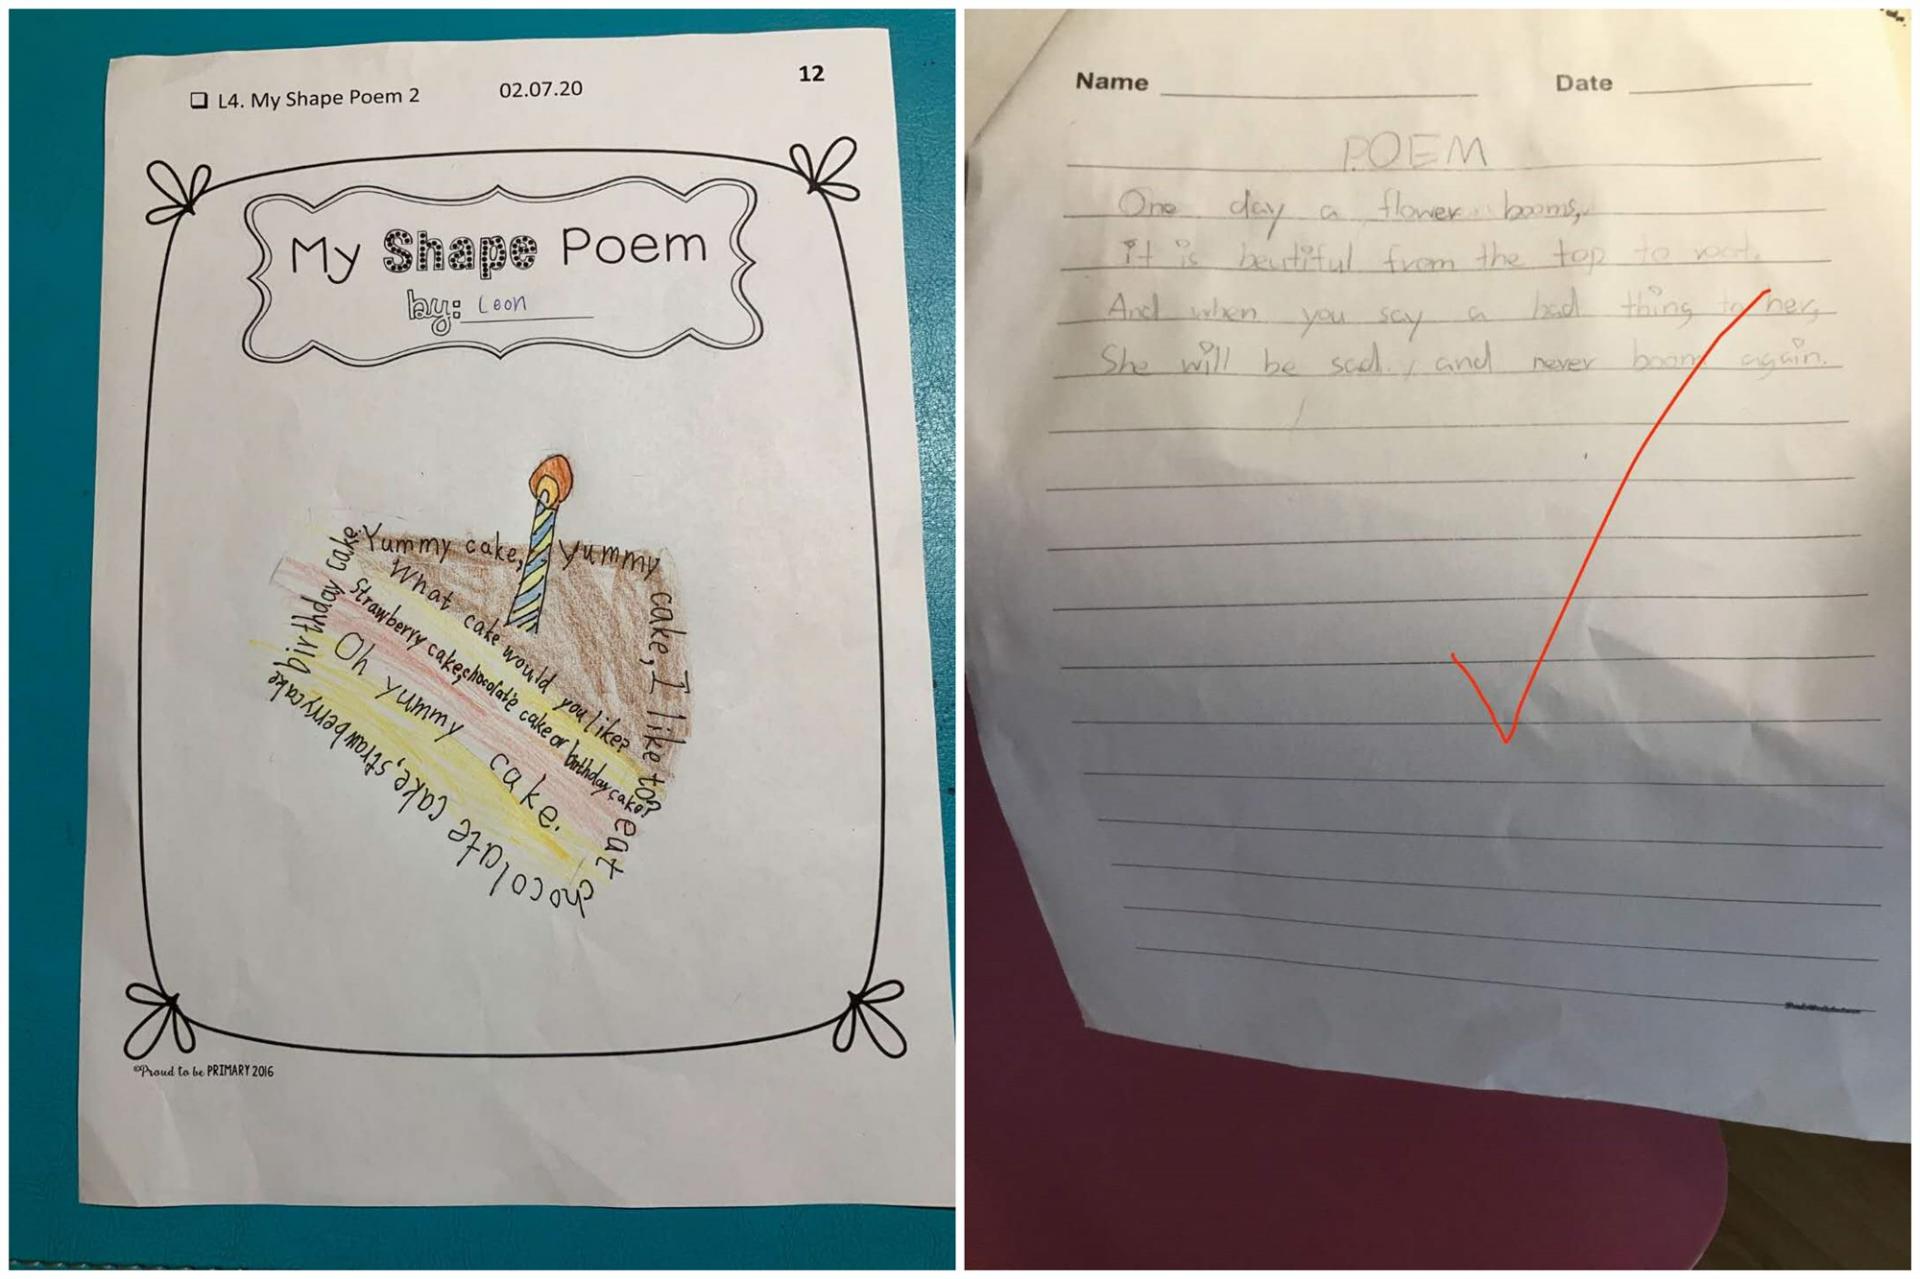 12
❏ L4. My Shape Poem 2 02.07.20
My Shape Poem
by: Leon
Yummy cake, yummy cake, I like to eat chocolate cake, strawberry cake birthday cake.
What cake would you like?
strawberry cake, chocolate cake or birthday cake?
Oh yummy cake.
©Proud to be PRIMARY 2016
Name Date
POEM
One day a flower booms,
it is beutiful from the top to root.
And when you say a bad thing to her,
She will be sad, and never boom again.